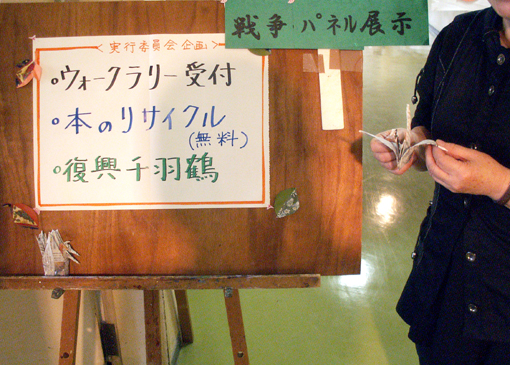 戦争パネル展示
<実行委員会企画>
•ウォークラリー受付
•本のリサイクル
(無料)
•復興千羽鶴